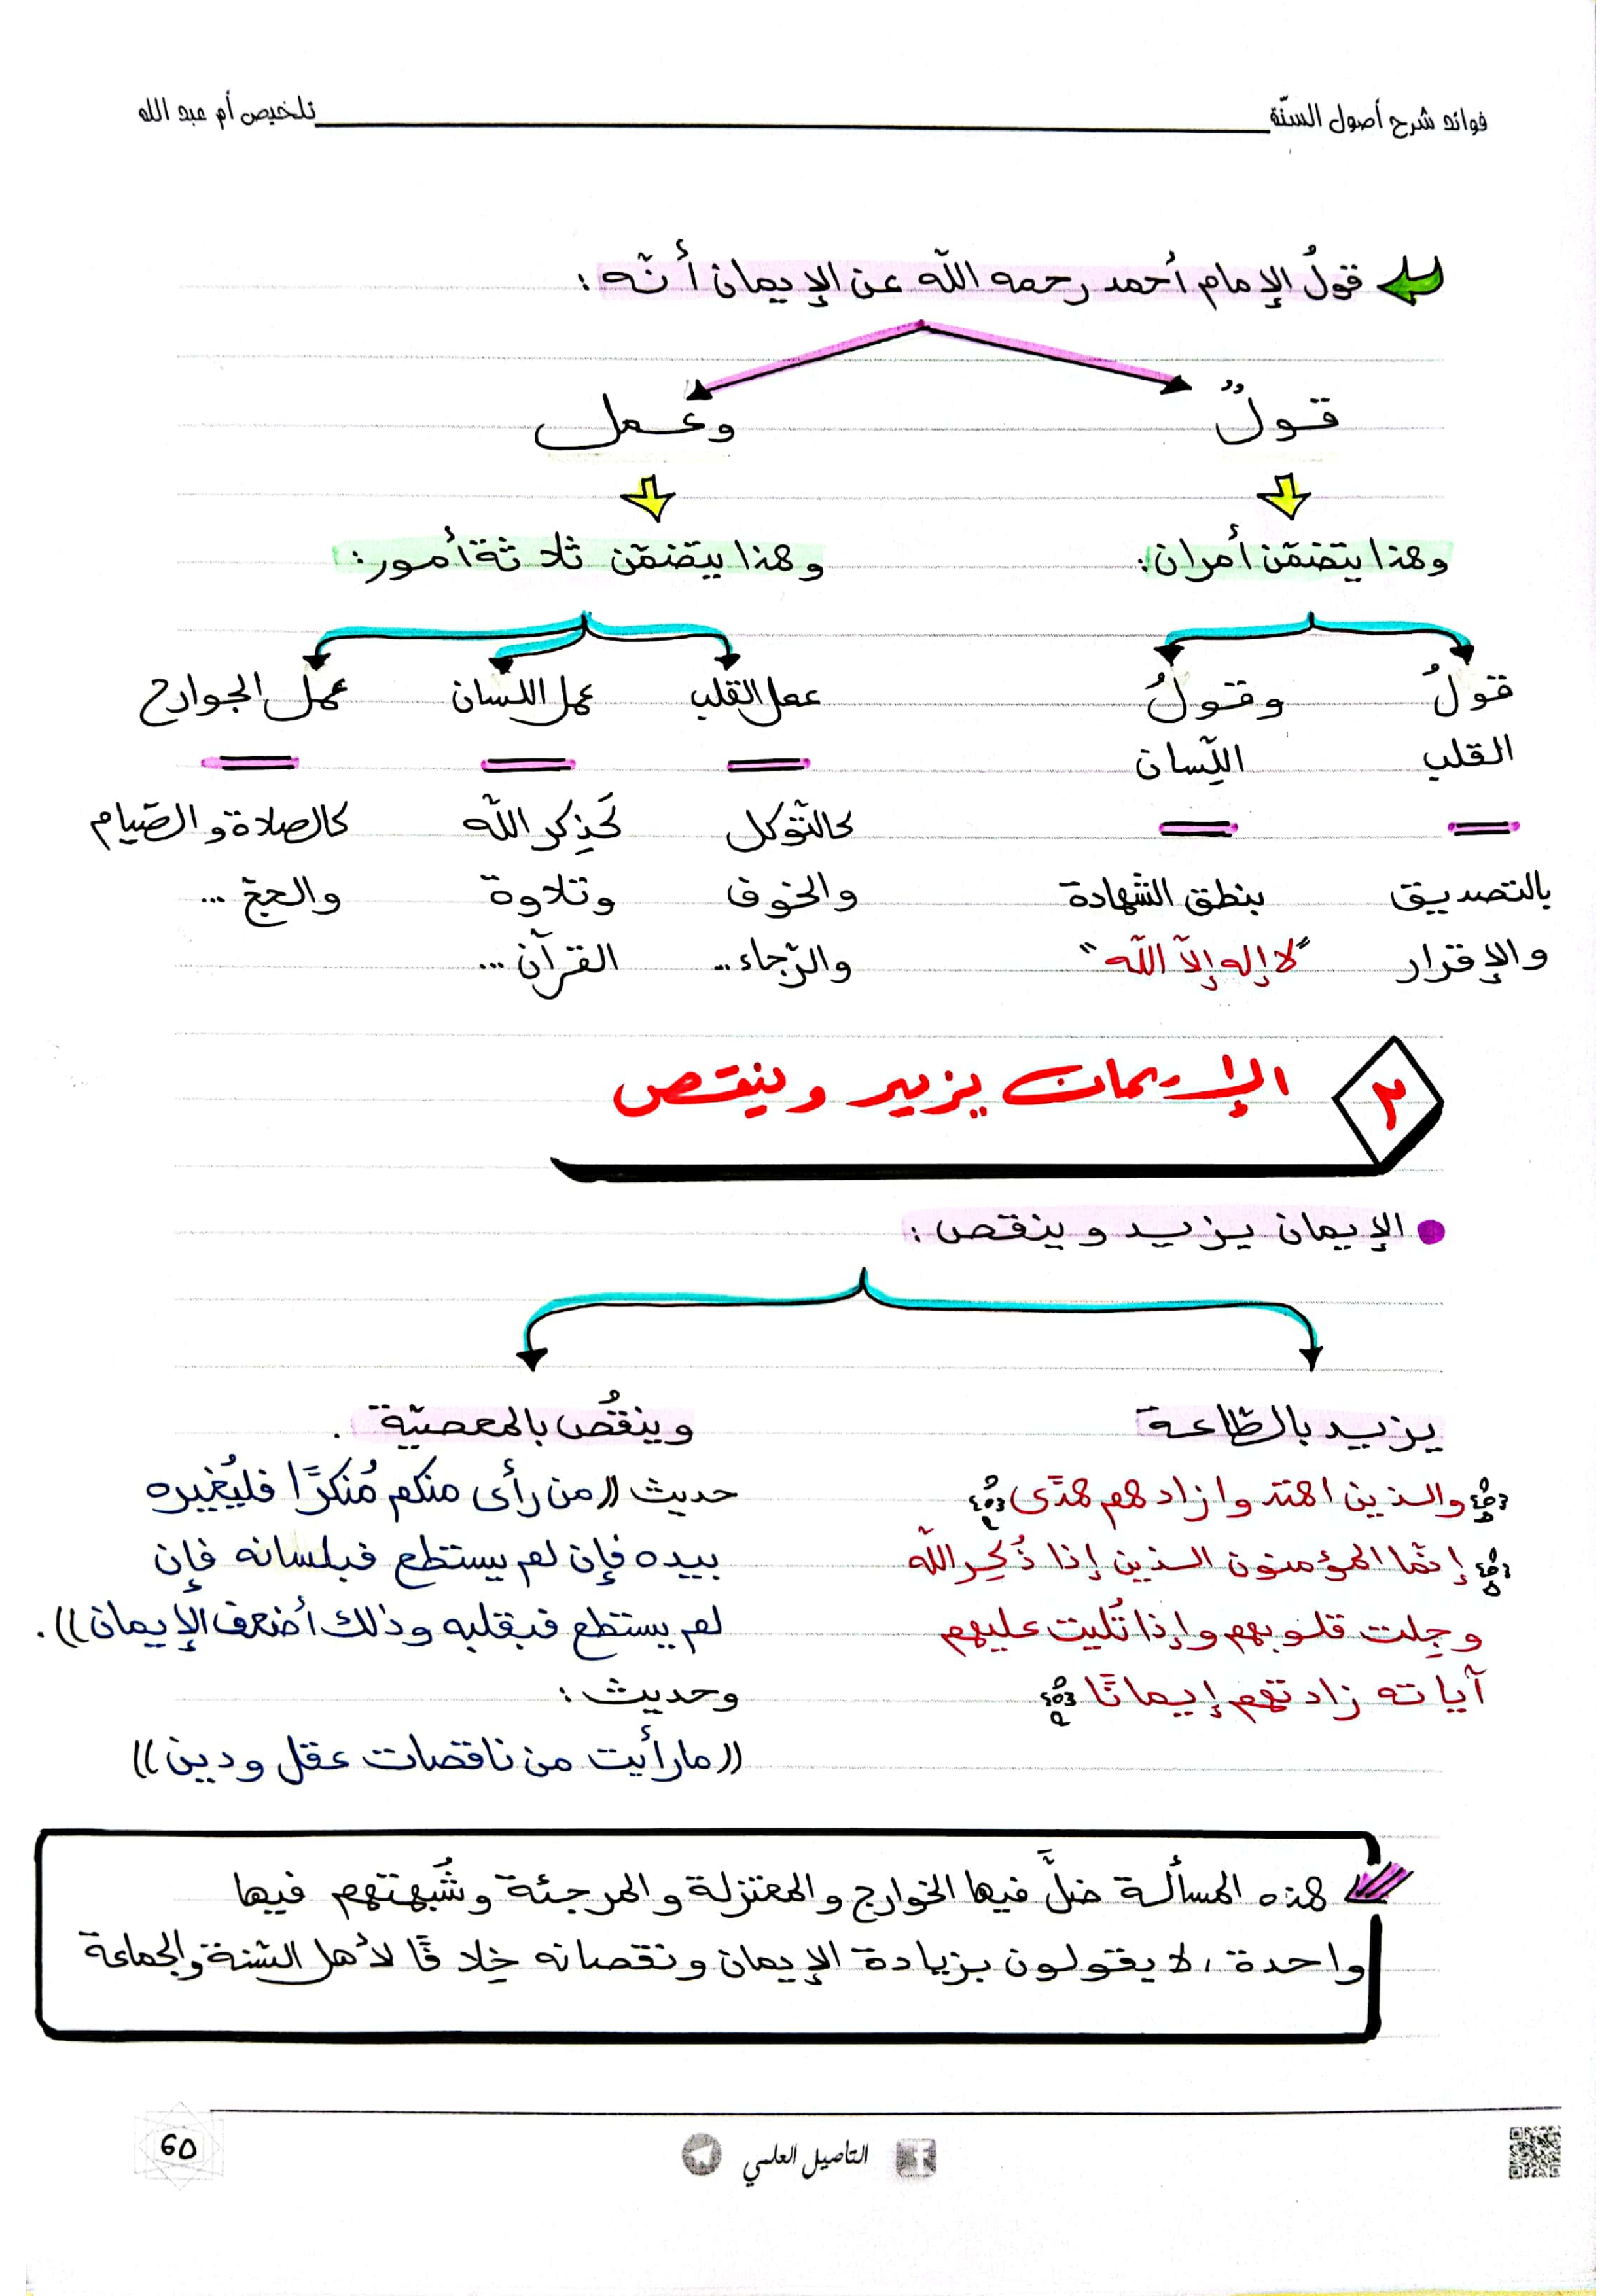 فوائد شرح أصول السنّة
تلخيص أم عبد الله
قولُ الإمام أحمد رحمه اللّه عن الإيمان أنّه :
قـولٌ
وعـمل
وهذا يتضمّن أمران:
وهذا يتضمّن ثلاثة أمور:
قولُ
القلب
بالتصديق
والإقرار
وقولُ
اللّسان
بنطق الشهادة
"لا إله إلّا اللّه"
عمل القلب
كالتّوكل
والخوف
والرّجاء..
عمل اللّسان
كَذِكر اللّه
وتلاوة
القرآن ...
عمل الجوارح
كالصلاة والصّيام
والحجّ ...
٢
الإيمان يزيد وينقص
الإيمان يـزيـد وينقص :
يـزيـد بالطّاعـة
وينقُص بالمعصيّة .
والـذين اهتدوا زادهم هدًى
إنّما المؤمنون الـذين إذا ذُكِر اللّه
وجِلت قلوبهم وإذا تُليت عليهم
آياته زادتهم إيمانًا
حديث ((من رأى منكم مُنكرًا فليُغييره
بيده فإن لم يستطع فبلسانه فإن
لم يستطع فبقلبه وذلك أضعف الإيمان)).
وحديث :
((ما رأيت من ناقصات عقل ودين))
هذه المسألة ضلَّ فيها الخوارج والمعتزلة والمرجئة وشُبهتهم فيها
واحدة، لا يقولون بزيادة الإيمان ونقصانه خِلافًا لأهل السّنة والجماعة
التأصيل العلمي
60